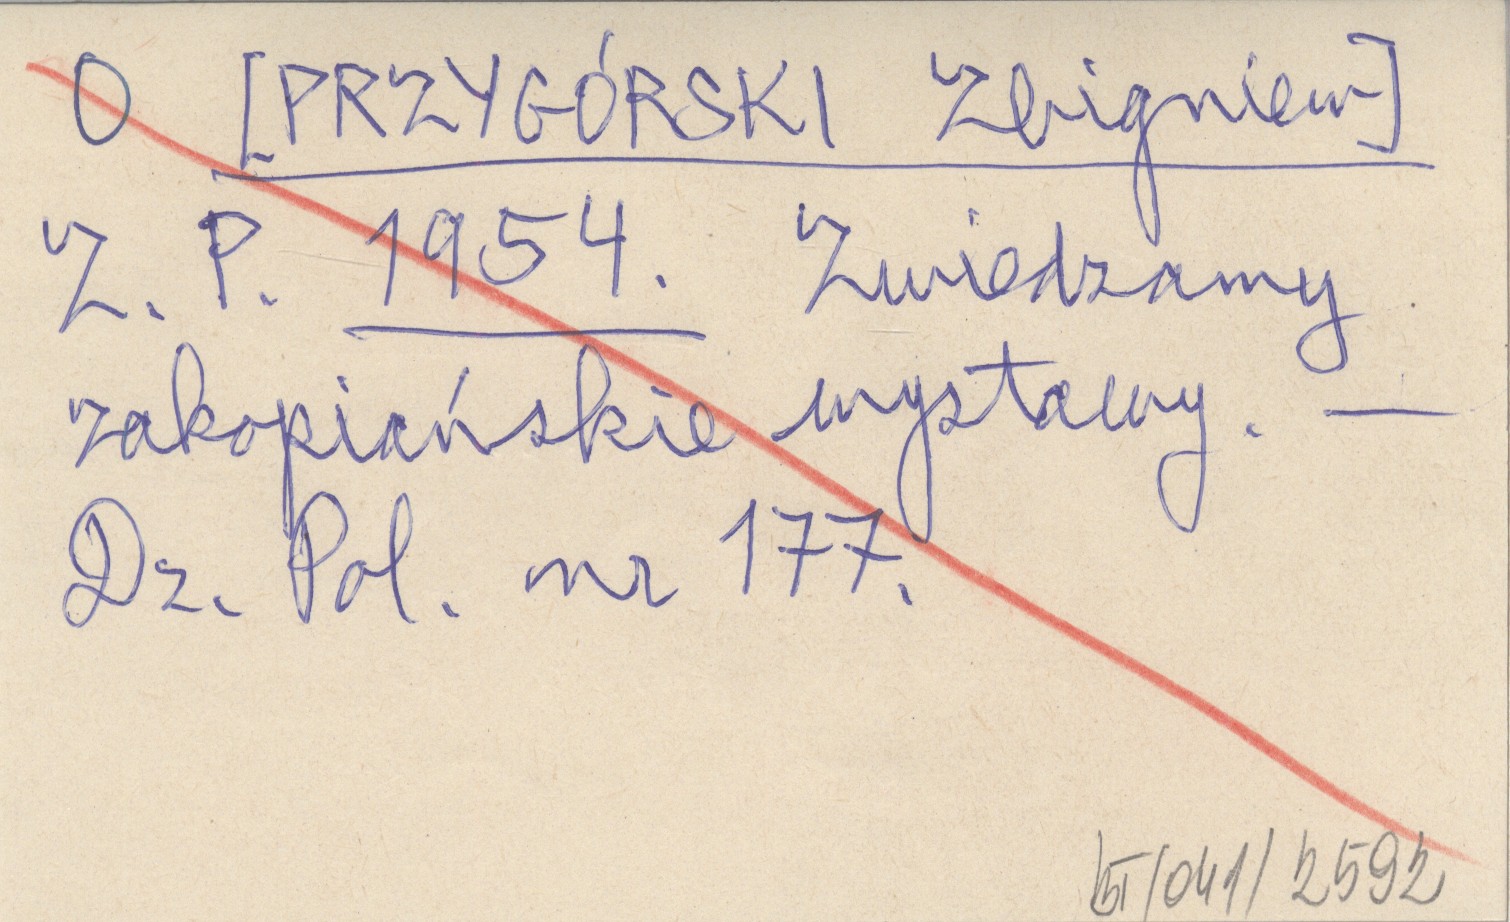 O [PRZYGÓRSKI Zbigniew]
Z. P. 1954. Zwiedzamy
zakopiańskie wystawy. —
Dz. Pol. nr 177.
/041/2592